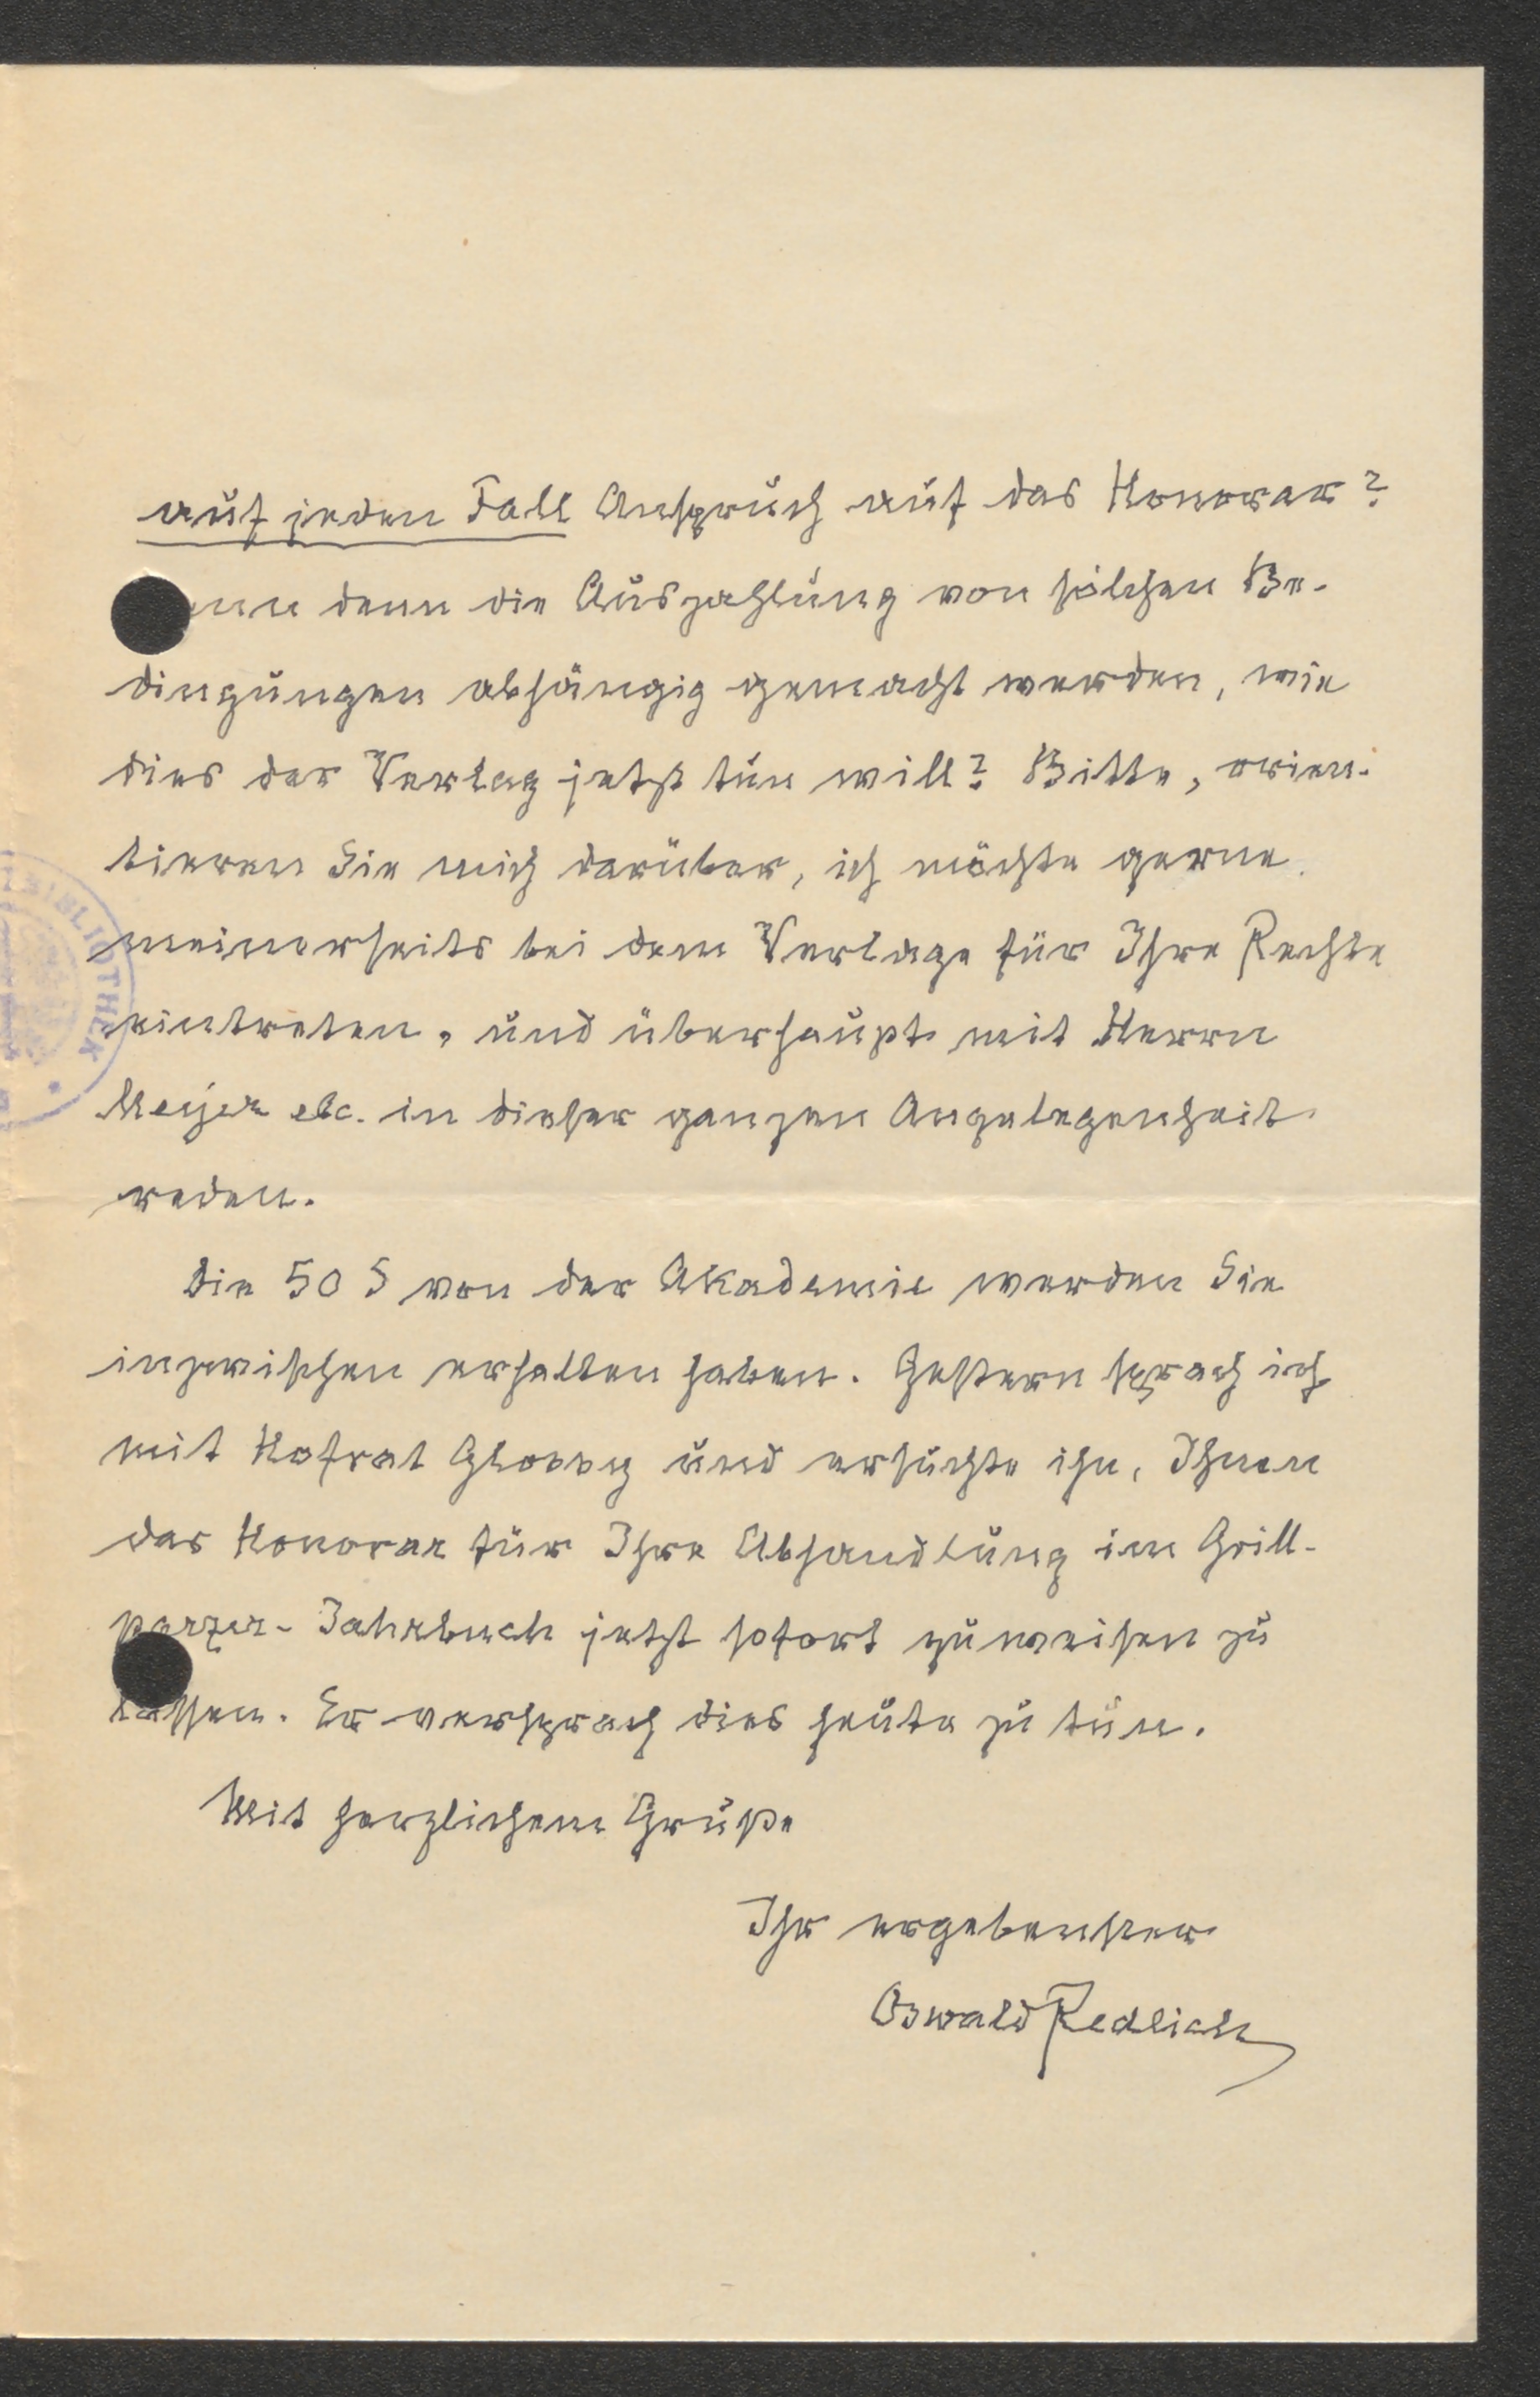 auf jeden Fall Anspruch auf das Honorar?
ann denn die Auszahlung von solchen Be-
dingungen abhängig gemacht werden, wie
dies der Verlag jetzt tun will? Bitte, orien-
tieren Sie mich darüber, ich möchte gerne
meinerseits bei dem Verlage für Ihre Rechte
eintreten, und überhaupt mit Herrn
Meyer etc. in dieser ganzen Angelegenheit
reden.
Die 50 S von der Akademie werden Sie
inzwischen erhalten haben. Gestern sprach ich
mit Hofrat Glossy und ersuchte ihn, Ihnen
das Honorar für Ihre Abhandlung im Grill-
parzer-Jahrbuch jetzt sofort zuweisen zu
lassen. Er versprach dies heute zu tun.
Mit herzlichem Gruße
Ihr ergebenster
Oswald Redlich
BIBLIOTHEK